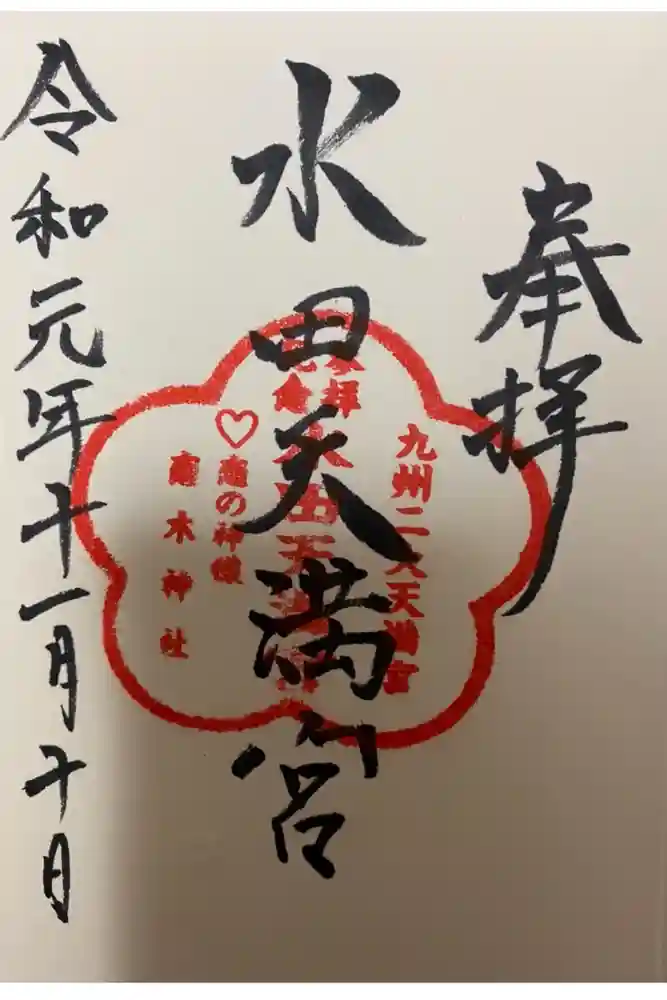 奉拝
水田天満宮
令和元年十一月十日
九州二大天満宮
水田天満宮
♡恋の神様
恋木神社